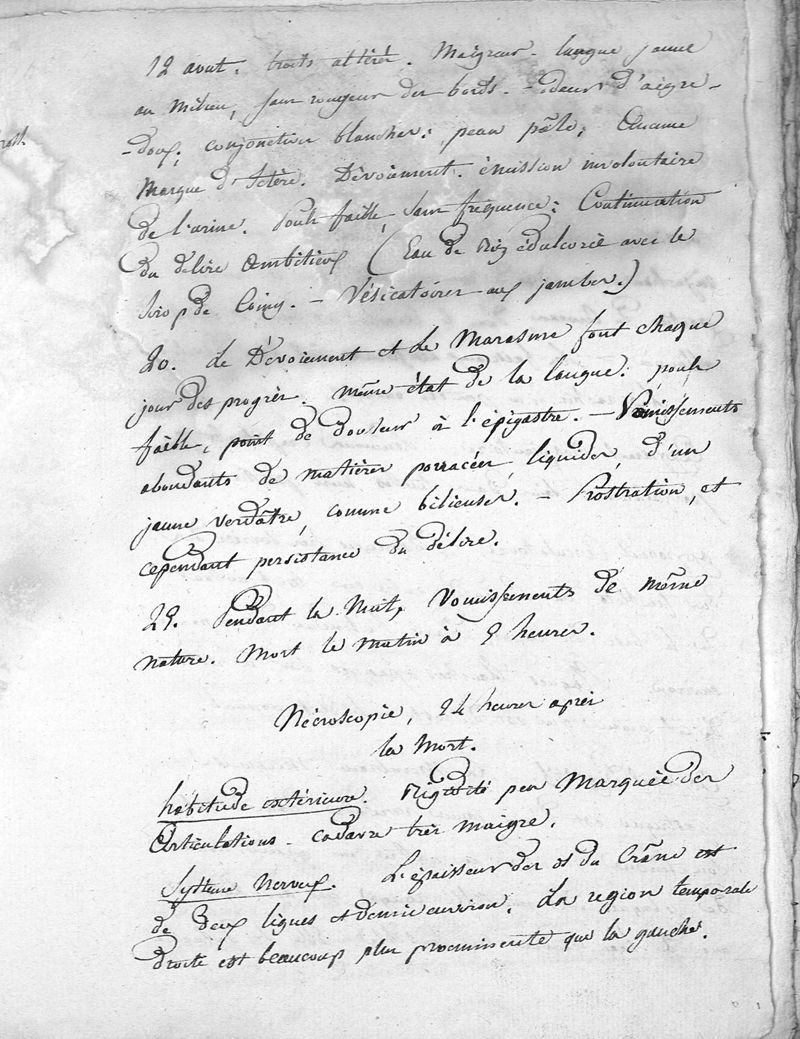 12 avout. traits altéré. Maigreur. langue jaune
au milieu, sans rougeur des bords. - odeur d'aigre-
-doux; conjonctives blanches; peau pâle; Aucune
Marque d'Ictère. Dévoiement. émission involontaire
de l'urine. Pouls faible, sans fréquence; Continuation
du délire ambitieux (Eau de Riz édulcorée avec le
sirop de Coing. - Vésicatoires aux jambes.)
20. le Dévoiement et le Marasme font chaque
jour des progrès. même état de la langue. pouls
faible, point de douleur à l'épigastre. - Vomissements
abondants de matières porracées, liquides, d'un
jaune verdâtre, comme bilieuses. - Prostration, et
cependant persistance du délire.
29. Pendant la Nuit, Vomissements de même
nature. Mort le matin à 9 heures.
Nécroscopie, 24 heures après
la Mort.
habitude extérieure. Rigidité peu Marquée des
Articulations - cadavre très maigre.
Système Nerveux. L'épaisseur des os du Crâne est
de Deux lignes et demie environ. La region temporale
droite est beaucoup plus proéminente que la gauche.